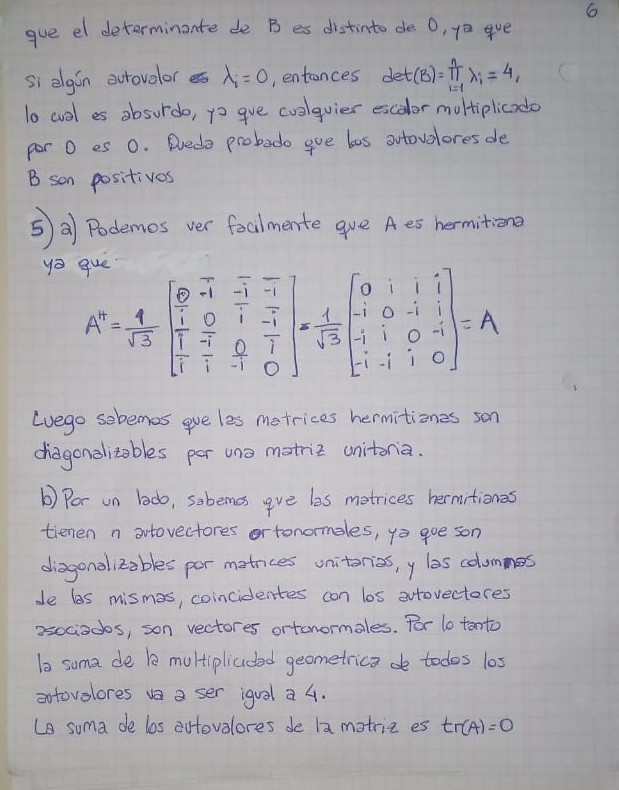 6
que el determinante de B es distinto de 0, ya que
si algún autovalor es λi = 0, entonces det(B) = ∏ᵢ₌₁ⁿ λi = 4,
lo cual es absurdo, ya que cualquier escalar multiplicado
por 0 es 0. Queda probado que los autovalores de
B son positivos
5) a) Podemos ver facilmente que A es hermitiana
ya que
A^H = 1/√3 [0̅ -i̅ -i̅ -i̅; i̅ 0 i̅ -i̅; i̅ -i̅ 0 i̅; i̅ i̅ -i̅ 0] = 1/√3 [0 i i i; -i 0 -i i; -i i 0 -i; -i -i i 0] = A
Luego sabemos que las matrices hermitianas son
diagonalizables por una matriz unitaria.
b) Por un lado, sabemos que las matrices hermitianas
tienen n autovectores ortonormales, ya que son
diagonalizables por matrices unitarias, y las columnas
de las mismas, coincidentes con los autovectores
asociados, son vectores ortonormales. Por lo tanto
la suma de la multiplicidad geometrica de todos los
autovalores va a ser igual a 4.
La suma de los autovalores de la matriz es tr(A)=0